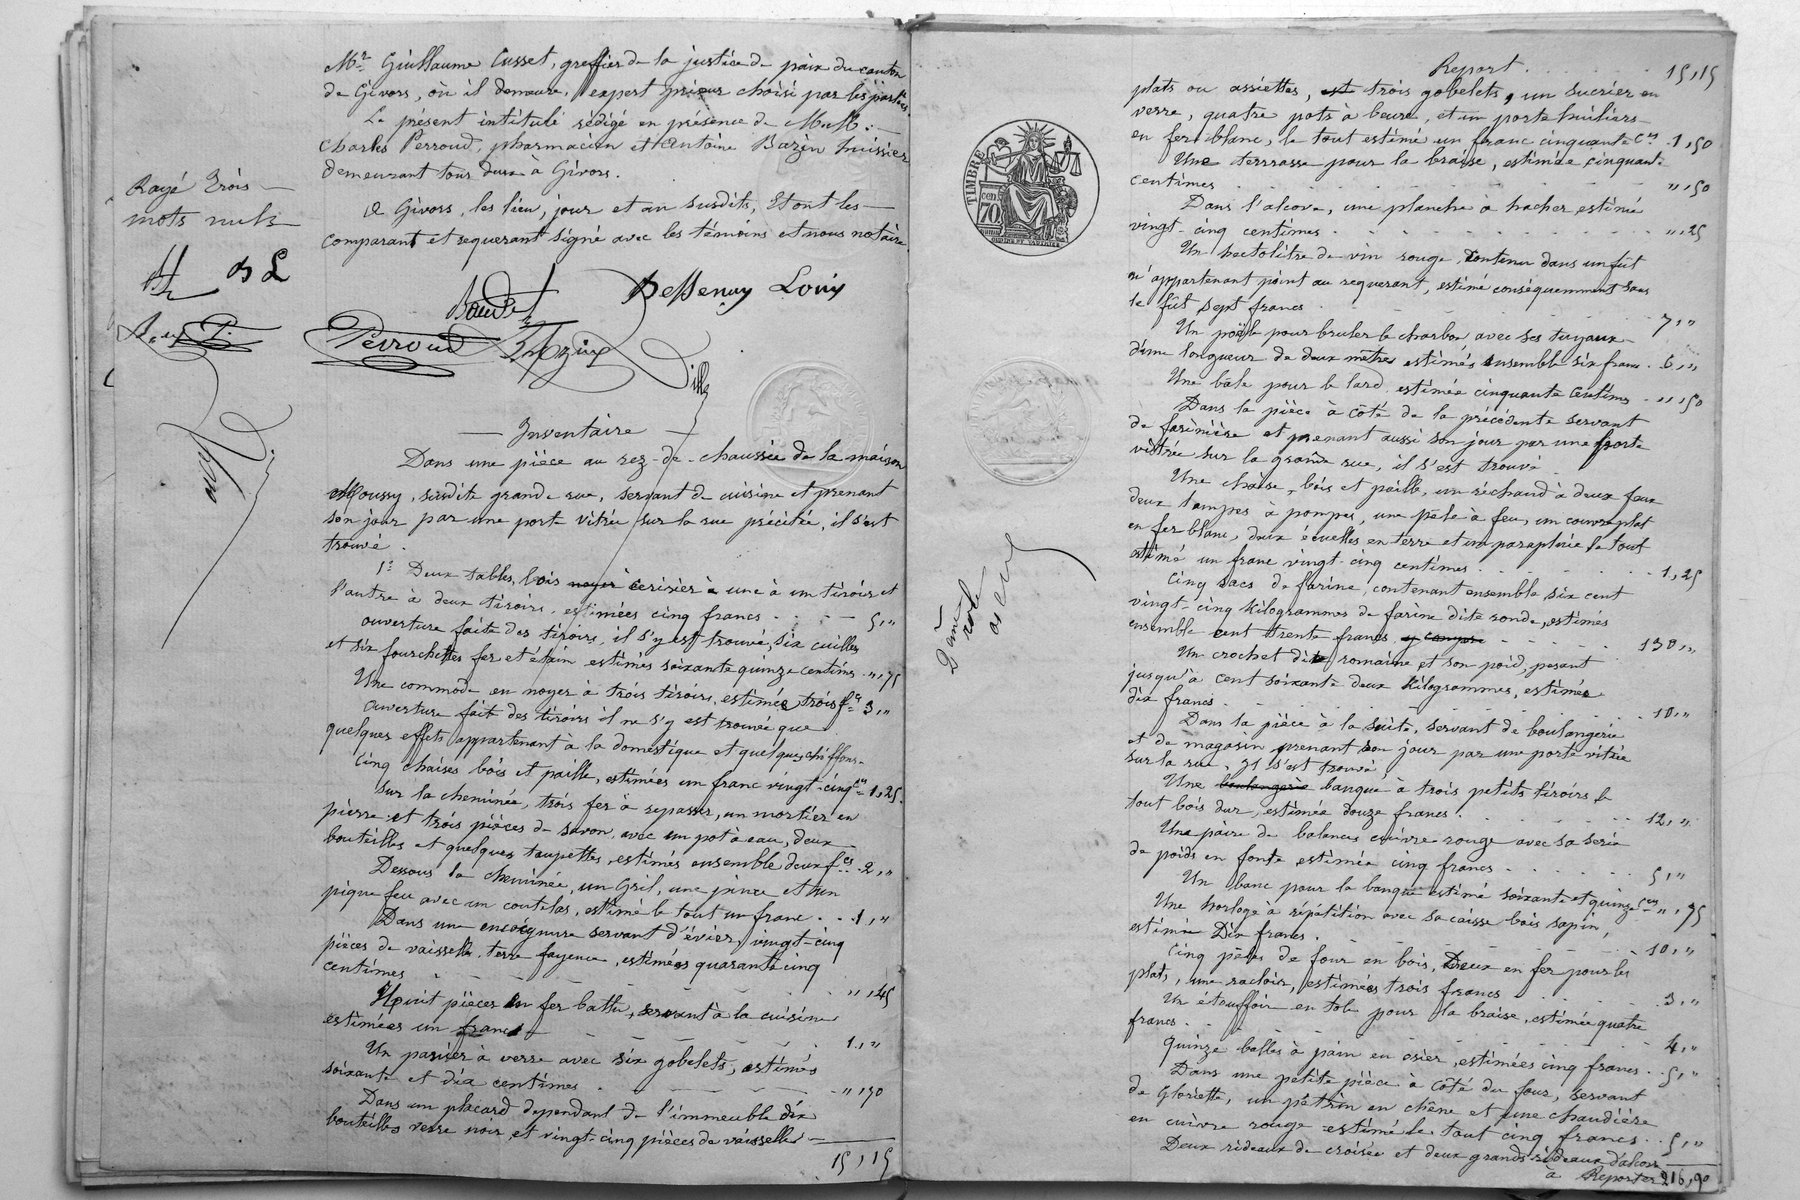 Mr Guillaume Cusset, greffier de la justice de paix du canton
de Givors, où il demeure, expert priseur choisi par les parties.
Le présent intitulé rédigé en présence de M.M. :
Charles Perroud, pharmacien et Antoine Bazin huissier
demeurant tous deux à Givors.
à Givors, les lieu, jour et an susdits, Et ont les
comparant et requerant signé avec les témoins et nous notaire.
Rayé Trois
mots nuls
Baudet
Dessenay Louis
Perroud
— Inventaire —
Dans une pièce au rez-de-chaussée de la maison
Moussy, susdite grande rue, servant de cuisine et prenant
son jour par une porte vitrée sur la rue précitée, il s'est
trouvé.
1° Deux tables, bois noyer cerisier à une à un tiroir et
l'autre à deux tiroirs, estimées cinq francs . . . 5,"
ouverture faite des tiroirs, il s'y est trouvé, six cuillers
et six fourchettes fer et étain estimés soixante quinze centimes . ",75
Une commode en noyer à trois tiroirs, estimée trois fcs 3,"
ouverture fait des tiroirs il ne s'y est trouvé que
quelques effets appartenant à la domestique et quelques chiffons.
Cinq chaises bois et paille, estimées un franc vingt-cinq ces 1,25.
Sur la cheminée, trois fer à repasser, un mortier en
pierre et trois pièces de savon, avec un pot à eau, deux
bouteilles et quelques toupettes, estimés ensemble deux fcs 2,"
Dessous la cheminée, un Gril, une pince et un
pique feu avec un coutelas, estimé le tout un franc . . 1,"
Dans une encoignure servant d'évier, vingt-cinq
pièces de vaisselle, terre fayence, estimées quarante cinq
centimes . . . ",45
Huit pièces en fer battu, servant à la cuisine
estimées un franc . . . 1,"
Un panier à verre avec six gobelets, estimés
soixante et dix centimes . . . ",70
Dans un placard dependant de l'immeuble dix
bouteilles verre noir et vingt-cinq pièces de vaisselle
15,15
TIMBRE
70
cen
Report . . . 15,15
plats ou assiettes, et trois gobelets, un sucrier en
verre, quatre pots à beurre, et un porte huiliers
en fer blanc, le tout estimé un franc cinquante ces 1,50
Une terrrasse pour la braise, estimée cinquante
centimes . . . ",50
Dans l'alcove, une planche à hacher estimée
vingt-cinq centimes . . . ",25
Un hectolitre de vin rouge, contenu dans un fût
n'appartenant point au requerant, estimé conséquemment sans
le fût sept francs . . . 7,"
Un poële pour bruler le charbon, avec ses tuyaux
d'une longueur de deux mètres estimés ensemble six francs . 6,"
Une bâle pour le lard, estimée cinquante centimes . ",50
Dans la pièce à côté de la précédente servant
de farinière et prenant aussi son jour par une porte
vitrée sur la grande rue, il s'est trouvé
Une chaise, bois et paille, un réchaud à deux feux
deux lampes à pompes, une pèle à feu, un couvre plat
en fer blanc, deux écuelles en terre et un parapluie le tout
estimé un franc vingt-cinq centimes . . . 1,25
Cinq sacs de farine, contenant ensemble six cent
vingt-cinq Kilogrammes de farine dite ronde, estimés
ensemble cent trente francs y compris . . . 130,"
Un crochet dite romaine et son poid, pesant
jusqu'à cent soixante deux Kilogrammes, estimée
dix francs . . . 10,"
Dans la pièce à la suite, servant de boulangerie
et de magasin prenant son jour par une porte vitrée
sur la rue, il s'est trouvé
Une boulangerie banque à trois petits tiroirs le
tout bois dur, estimée douze francs . . . 12,"
Une paire de balances cuivre rouge avec sa serie
de poids en fonte estimée cinq francs . . . 5,"
Un banc pour la banque estimé soixante et quinze ces ",75
Une horloge à répétition avec sa caisse bois sapin,
estimée Dix francs . . . 10,"
Cinq pèles de four en bois, Deux en fer pour les
plats, une racloir, estimées trois francs . . . 3,"
Un étouffoir en tole pour la braise, estimée quatre
francs . . . 4,"
Quinze balles à pain en osier, estimées cinq francs . . 5,"
Dans une petite pièce à côté du four, servant
de Gloriette, un pétrin en chêne et une chaudière
en cuivre rouge estimé le tout cinq francs . . 5,"
Deux rideaux de croisée et deux grands rideaux d'alcove
à Reporter 216,90